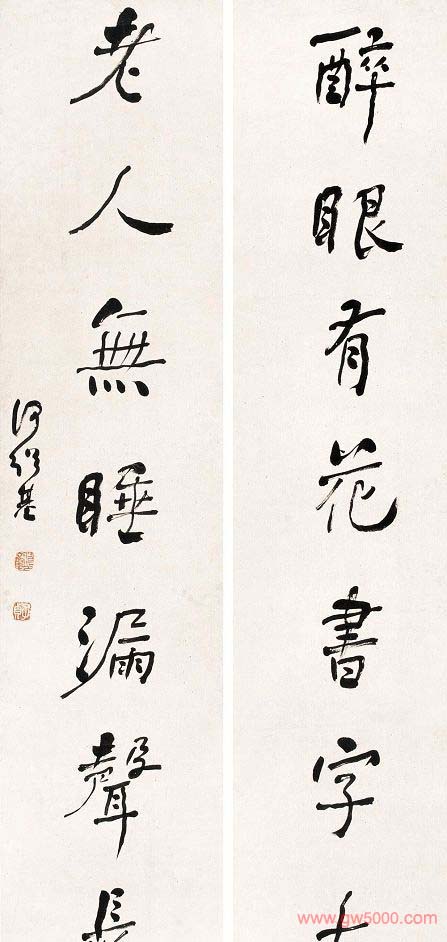 醉眼有花書字大
老人無睡漏聲長
何紹基
www.gw5000.com